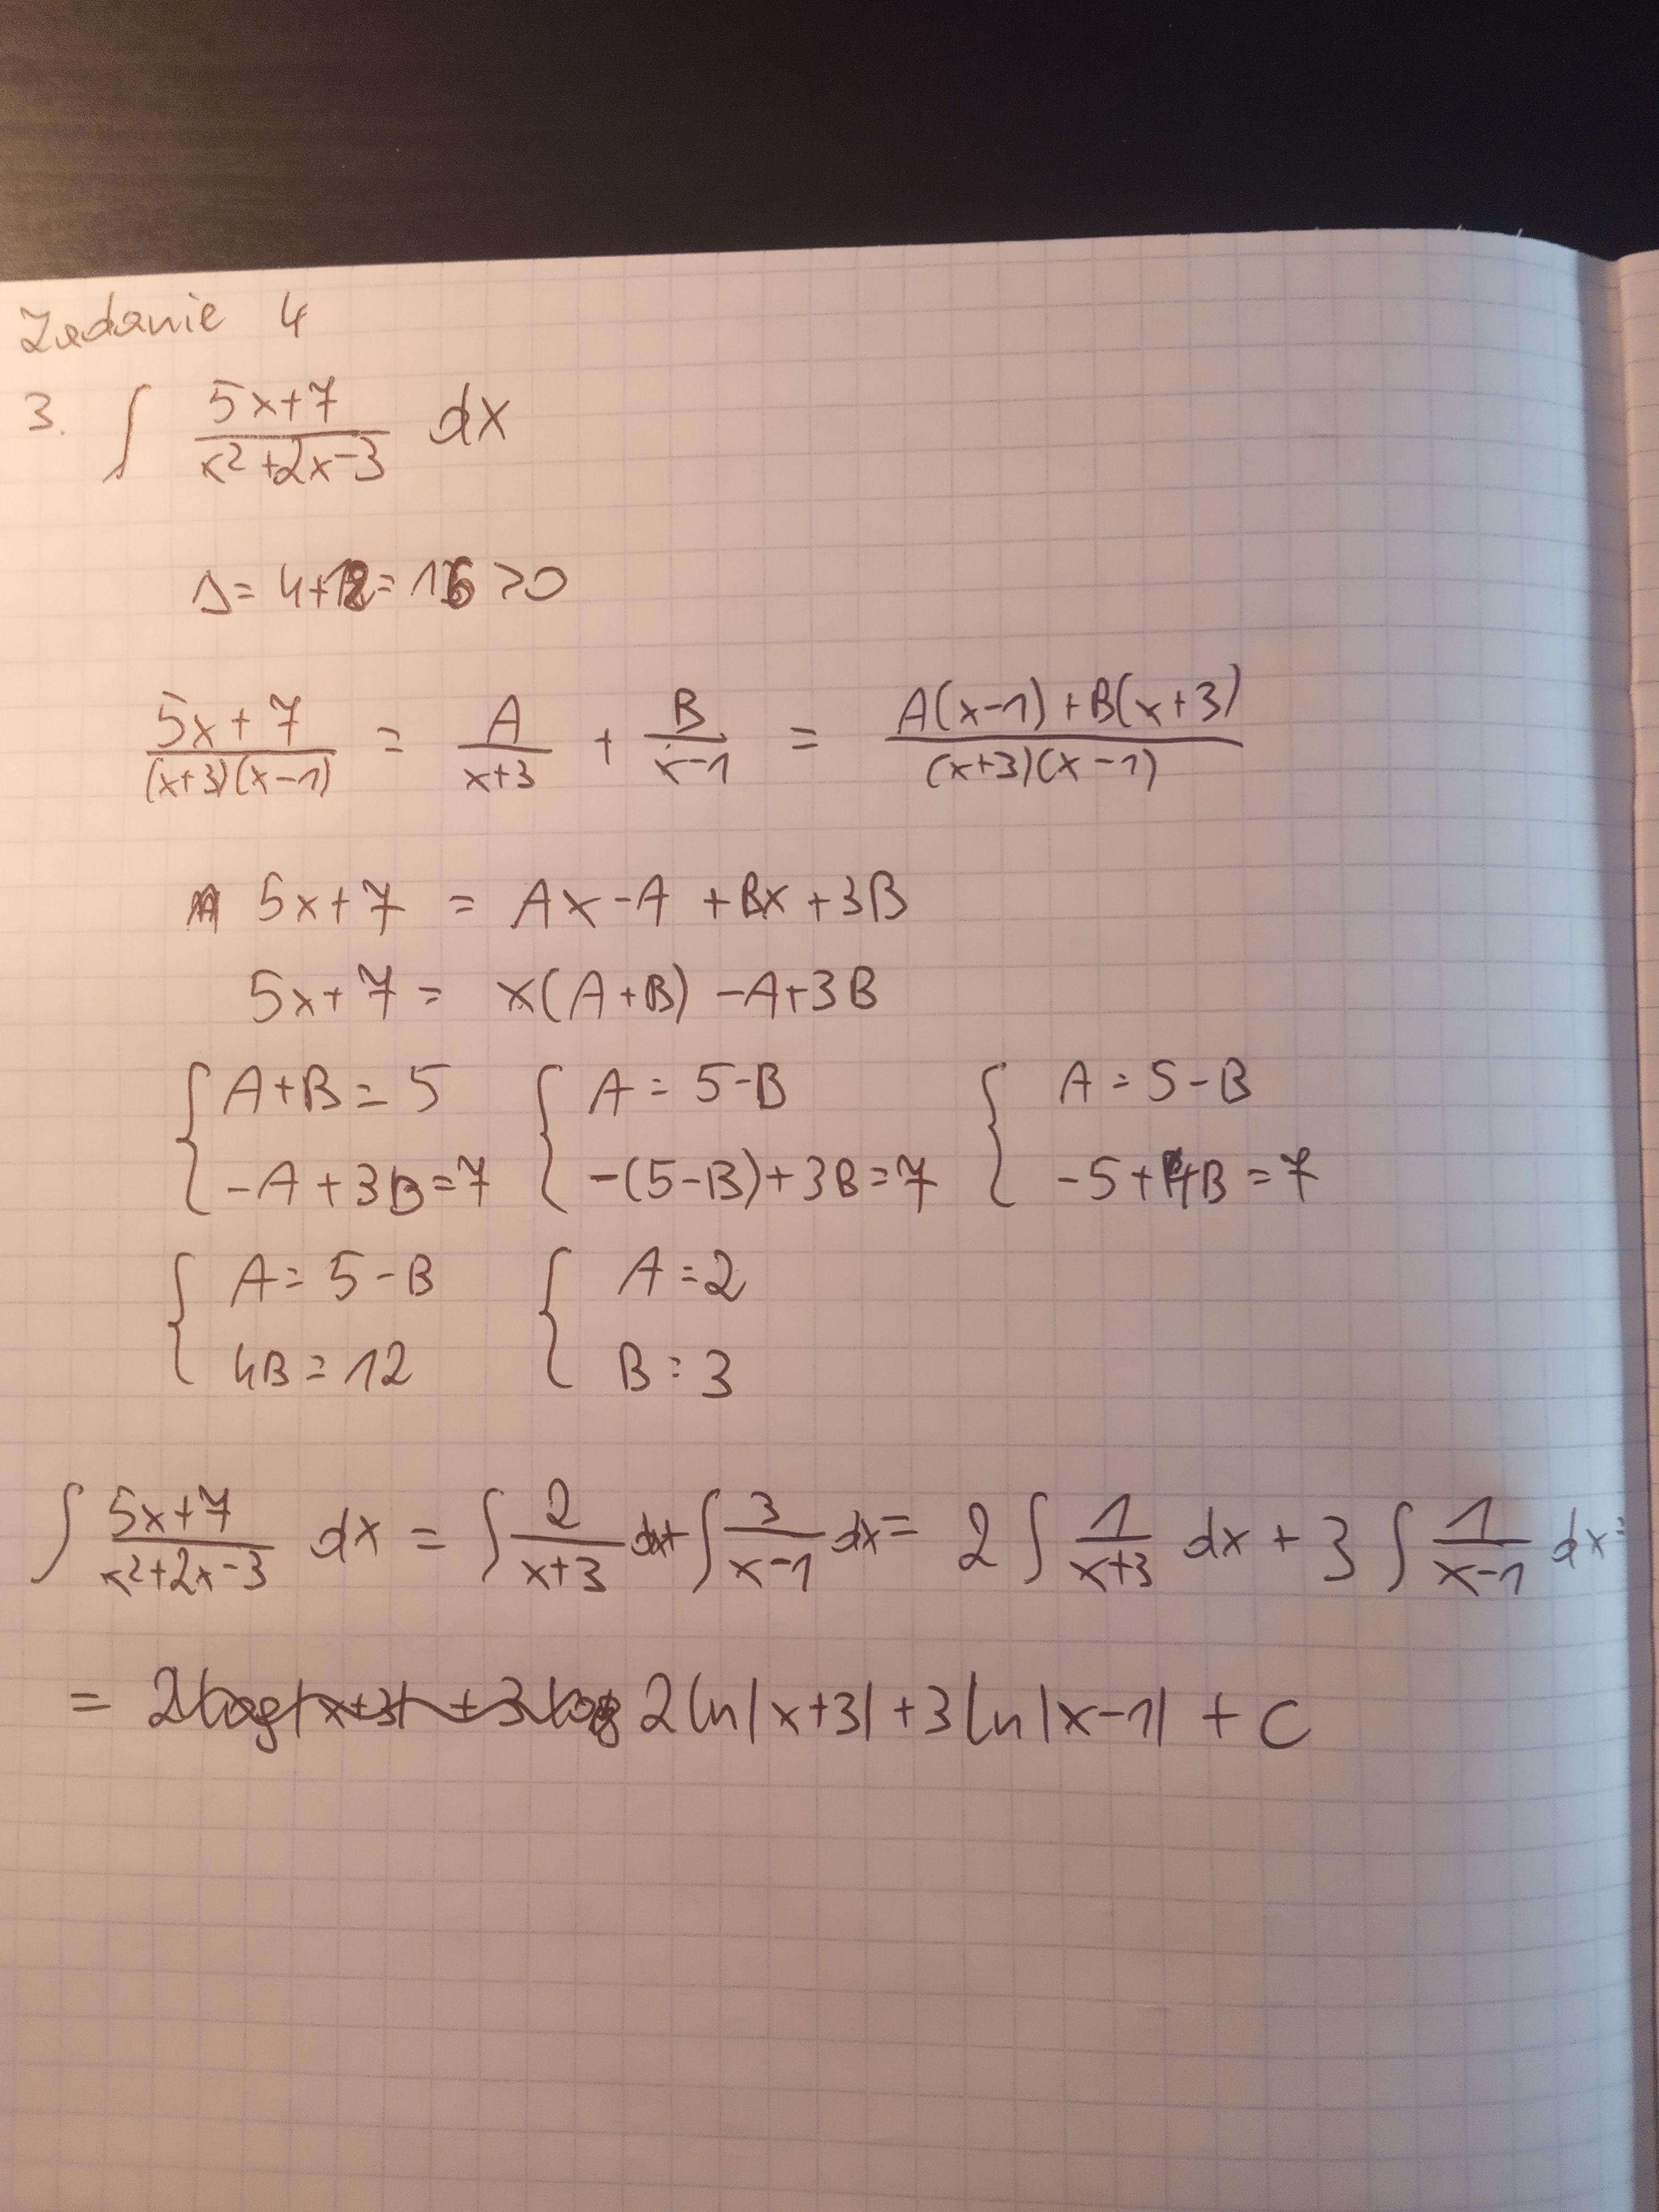 Zadanie 4
3. ∫ (5x+7)/(x²+2x-3) dx
Δ = 4+12 = 16 >0
(5x+7)/((x+3)(x-1)) = A/(x+3) + B/(x-1) = (A(x-1)+B(x+3))/((x+3)(x-1))
5x+7 = Ax-A+Bx+3B
5x+7 = x(A+B) -A+3B
{ A+B=5 { A=5-B { A=5-B
-A+3B=7 -(5-B)+3B=7 -5+4B=7
{ A=5-B { A=2
4B=12 B=3
∫ (5x+7)/(x²+2x-3) dx = ∫ 2/(x+3) dx + ∫ 3/(x-1) dx = 2 ∫ 1/(x+3) dx + 3 ∫ 1/(x-1) dx =
= 2 ln|x+3| + 3 ln|x-1| + C